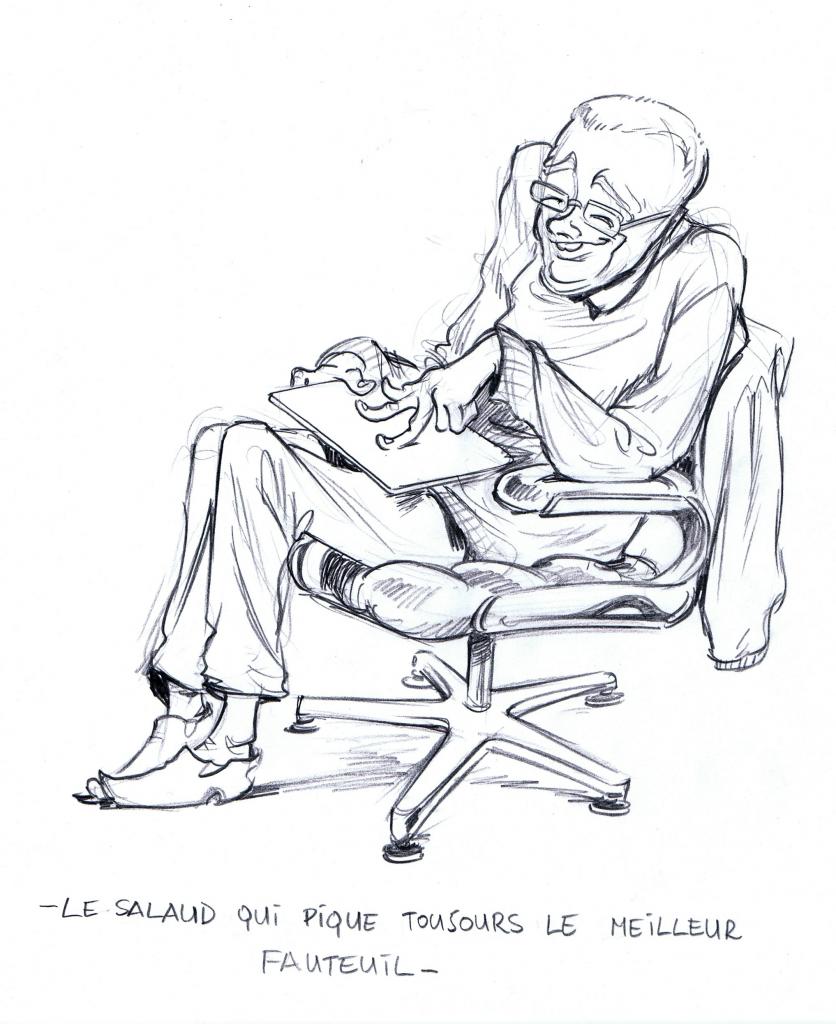 -LE SALAUD QUI PIQUE TOUJOURS LE MEILLEUR
FAUTEUIL-